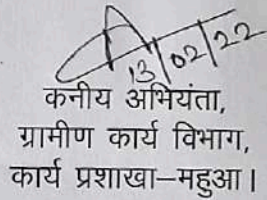 13/02/22
कनीय अभियंता,
ग्रामीण कार्य विभाग,
कार्य प्रशाखा–महुआ।